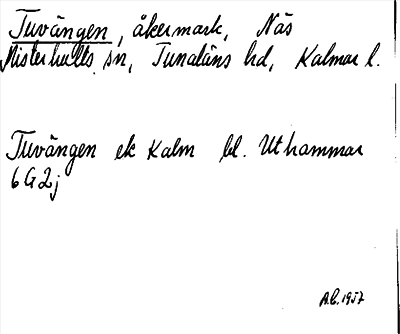 Tuvängen, åkermark, Näs
Misterhults sn, Tunaläns hd, Kalmar l.
Tuvängen ek Kalm bl. Uthammar
6G2j
A.C. 1957